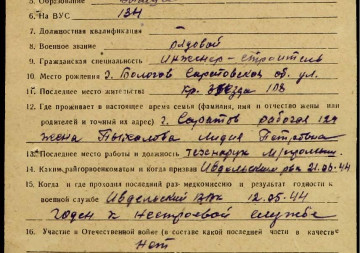 5. Образование
6. На ВУС 134
7. Должностная квалификация
8. Военное звание рядовой
9. Гражданская специальность инженер-строитель
10. Место рождения г. Саратовской об. ул.
11. Последнее место жительства Кр. звезда 108
12. Где проживает в настоящее время семья (фамилия, имя и отчество жены или
родителей и точный их адрес) г. Саратов рабочая 129
жена Лидия Петровна
13. Последнее место работы и должность технорук
14. Каким райгорвоенкоматом и когда призван Ивдельским рвк 21.05-44
15. Когда и где проходил последний раз медкомиссию и результат годности к
военной службе Ивдельский РВК 12.05-44
Годен к нестроевой службе
16. Участие в Отечественной войне (в составе какой последней части в качестве
Нет